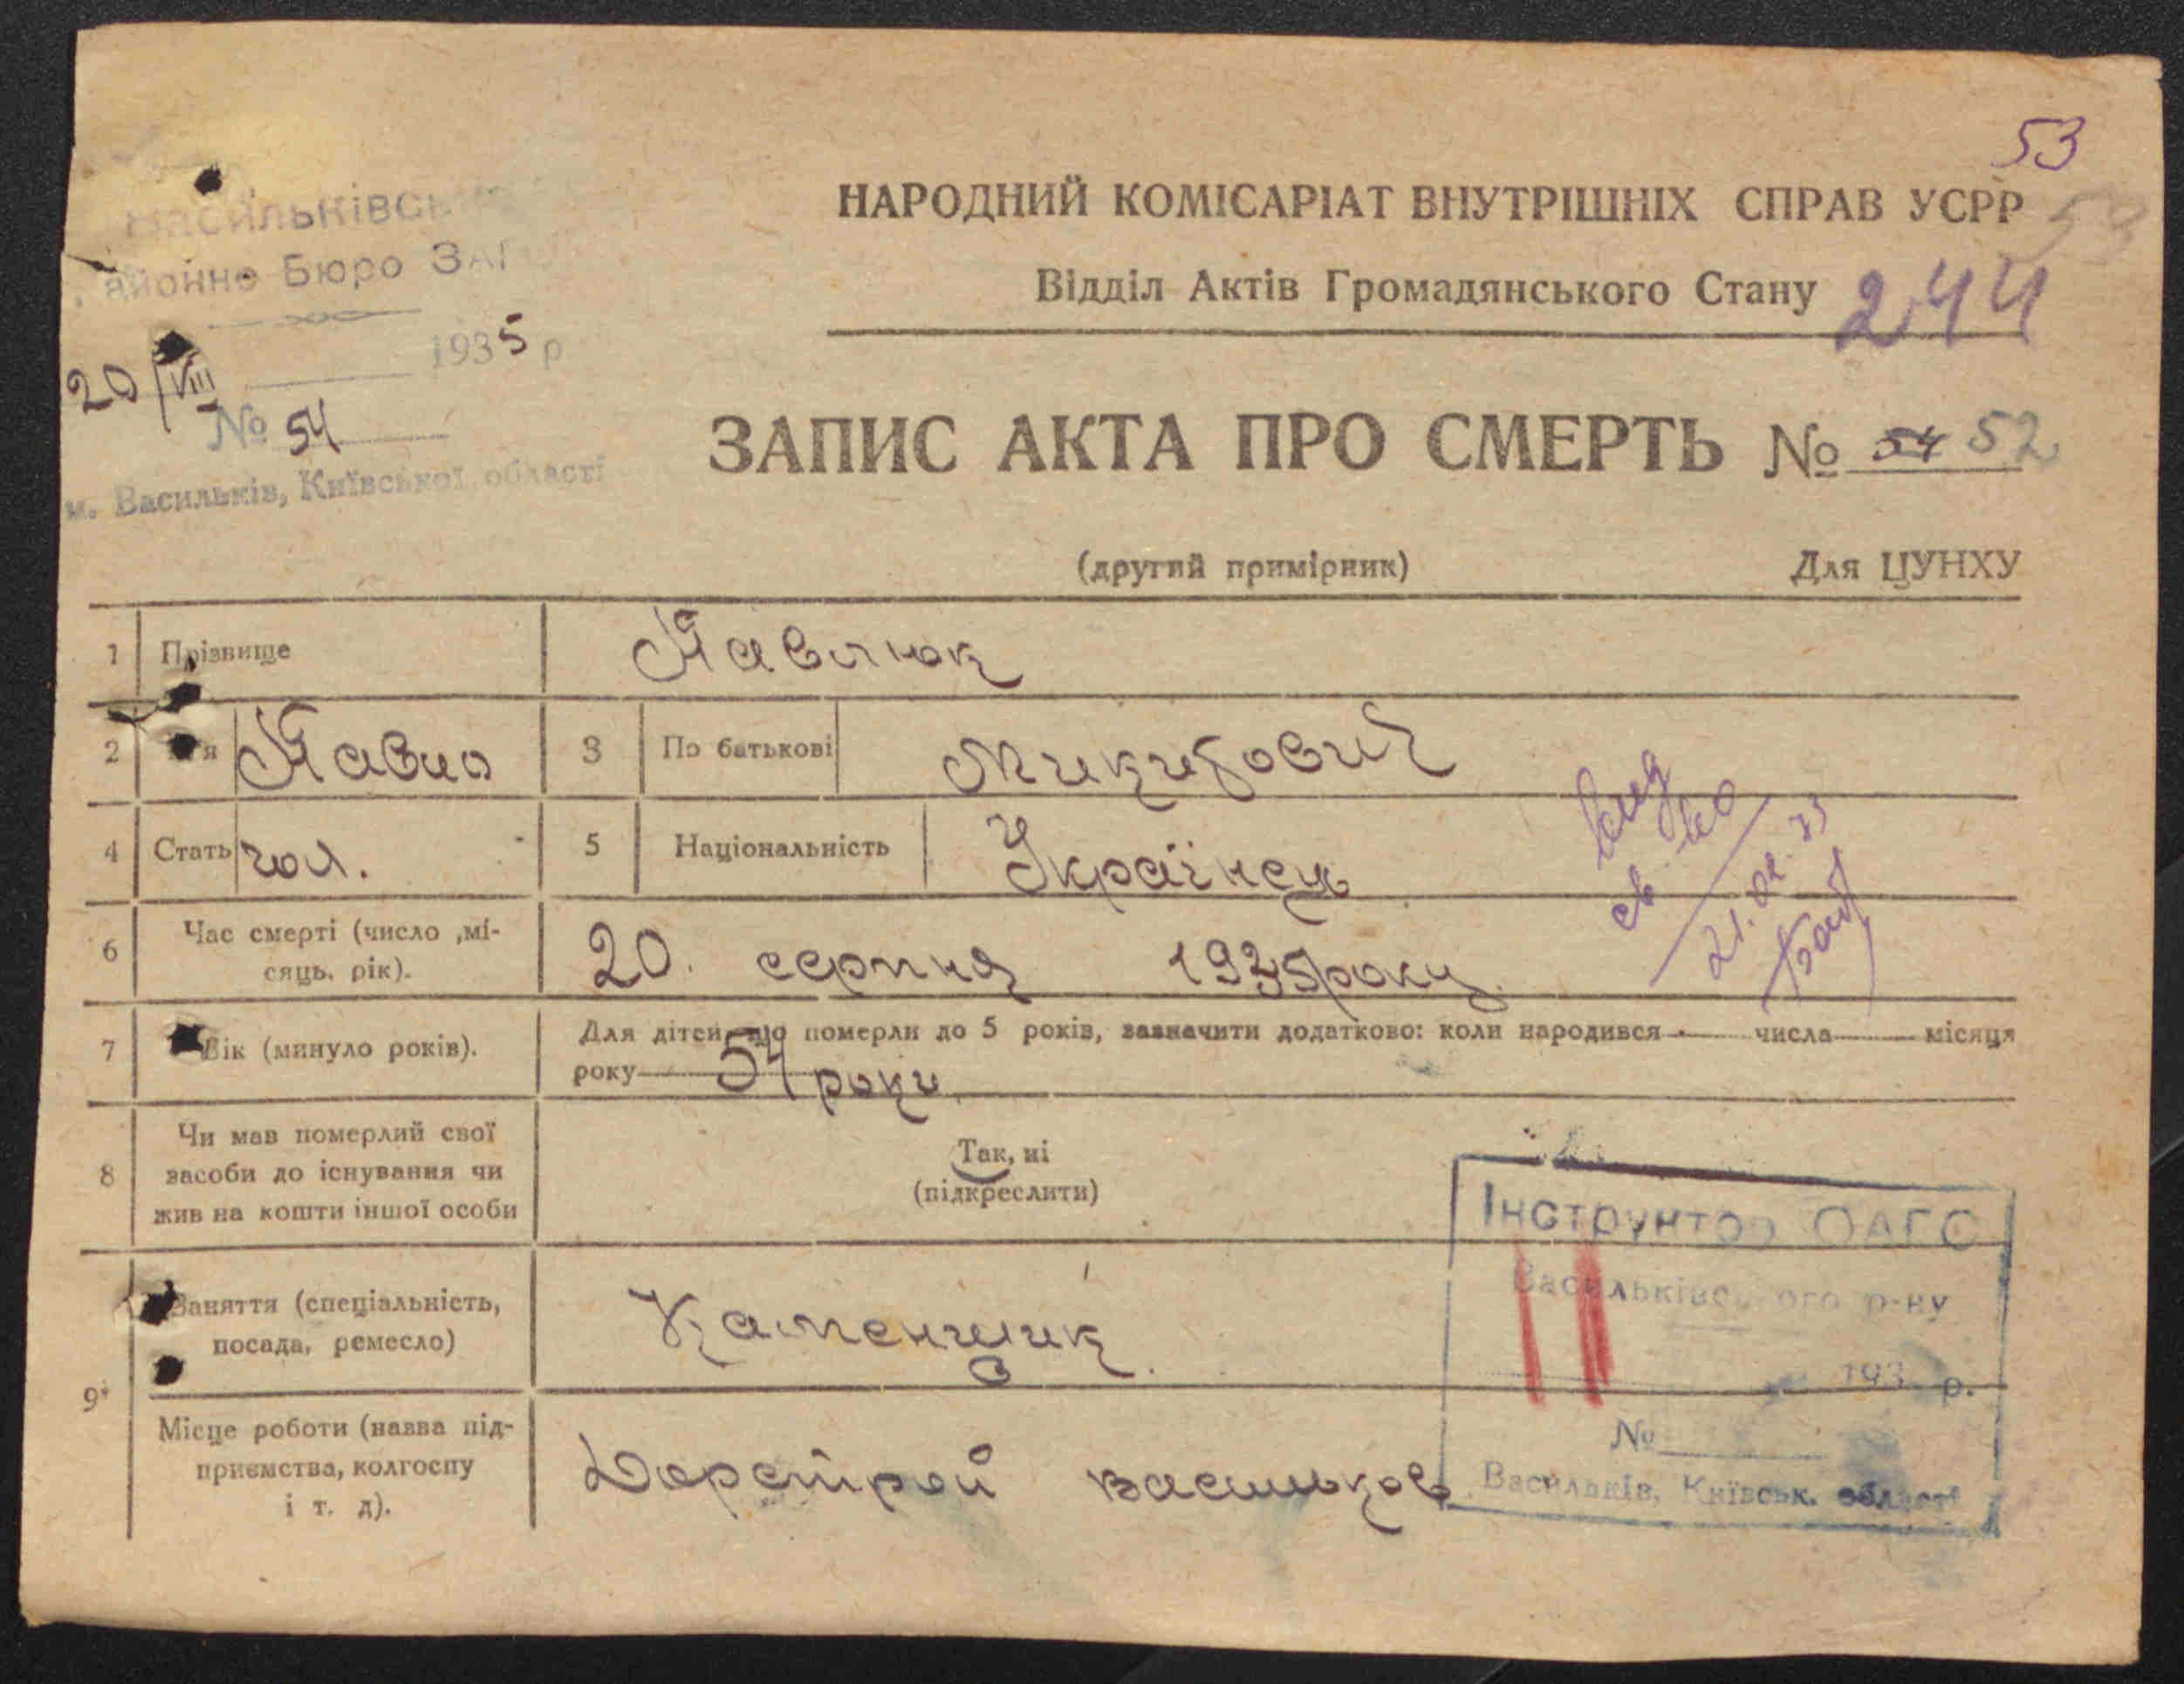 53
НАРОДНИЙ КОМІСАРІАТ ВНУТРІШНІХ СПРАВ УСРР 53
Відділ Актів Громадянського Стану 244
Васильківськ
районне Бюро ЗАГС
20/VIII 1935 р
№ 54
м. Васильків, Київської області
ЗАПИС АКТА ПРО СМЕРТЬ № 54 52
(другий примірник) Для ЦУНХУ
1 Прізвище Павлюк
2 Ім'я Павло 3 По батькові Микитович
4 Стать чол. 5 Національність Українець
6 Час смерті (число ,мі-
сяць, рік). 20. серпня 1935 року.
7 Вік (минуло років). Для дітей, що померли до 5 років, зазначити додатково: коли народився — числа — місяця
року 54 роки
8 Чи мав померлий свої
засоби до існування чи
жив на кошти іншої особи
Так, ні
(підкреслити)
9 Заняття (спеціальність,
посада, ремесло) Каменщик.
Місце роботи (назва під-
приємства, колгоспу
і т. д).
Дорстрой Васильков
Інструктор ОАГС
Васильківського р-ну
193 р.
№
Васильків, Київськ. області
вид
св-во
21.02.73